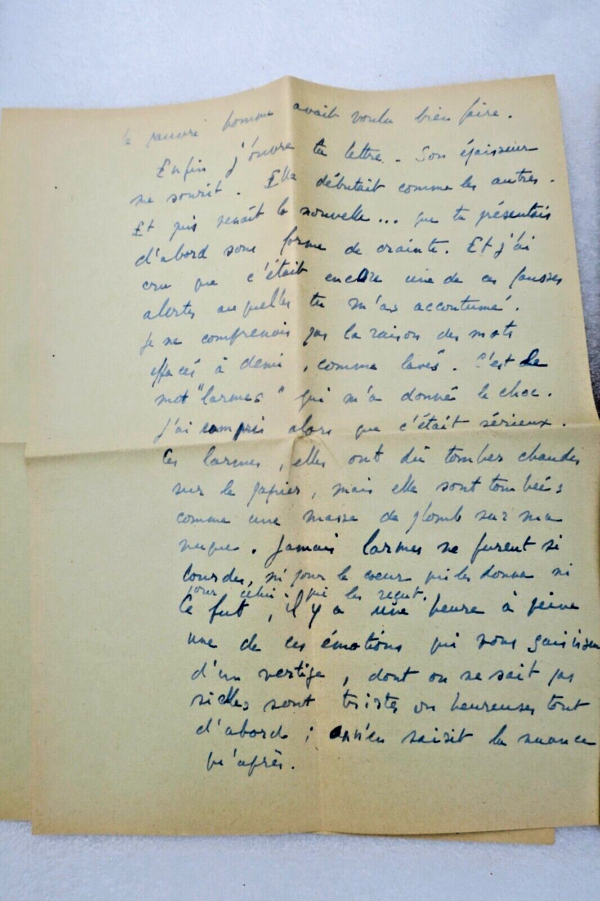 le pauvre homme avait voulu bien faire.
Enfin j'ouvre ta lettre. Son épaisseur
me sourit. Elle débutait comme les autres.
Et puis venait la nouvelle... que tu présentais
d'abord sous forme de crainte. Et j'ai
cru que c'était encore une de ces fausses
alertes auxquelles tu m'as accoutumé.
Je ne comprenais pas la raison des mots
effacés à demi, comme lavés. C'est le
mot "larmes" qui m'a donné le choc.
J'ai compris alors que c'était sérieux.
Ces larmes, elles ont dû tomber chaudes
sur le papier, mais elles sont tombées
comme une masse de plomb sur ma
nuque. Jamais larmes ne furent si
lourdes, ni pour le coeur qui les donne ni
pour celui qui les reçut.
Ce fut, il y a une heure à peine
une de ces émotions qui vous saisissent
d'un vertige, dont on ne sait pas
si elles sont tristes ou heureuses tout
d'abord ; on n'en saisit la nuance
qu'après.